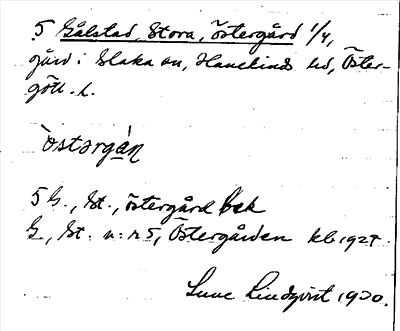 5 Gålstad, Stora, Östergård 1/4,
gård i Slaka sn, Hanekinds hd, Öster-
götl. l.
östərgán
5 G., St., östergård bek
G., St. n:r 5, Östergården kb 1927.
Sune Lindqvist 1930.